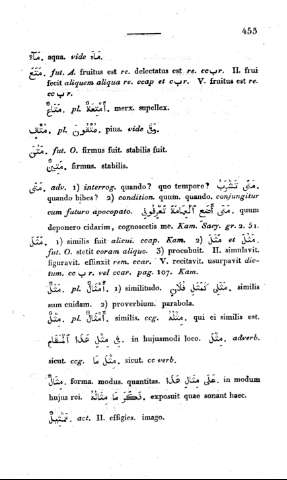 453
مَآءٌ. aqua. vide مَآءَ.
مَتَعَ. fut. A. fruitus est re. delectatus est re. cc ب r. II. frui
fecit aliquem aliqua re. ccap et c ب r. V. fruitus est re.
cc ب r.
مَتَاعٌ. pl. أَمْتِعَةٌ. merx. supellex.
مُتَّقٍ. pl. مُتَّقُونَ. pius. vide وَقَى.
مَتُنَ. fut. O. firmus fuit. stabilis fuit.
مَتِينٌ. firmus. stabilis.
مَتَى. adv. 1) interrog. quando? quo tempore? مَتَى تَشْرَبُ
quando bibes? 2) condition. quum. quando. conjungitur
cum futuro apocopato. مَتَى أَضَعِ ٱلْعِمَامَةَ تَعْرِفُونِي. quum
deponero cidarim, cognoscetis me. Kam. Sacy. gr. 2. 31.
مَثَلَ. 1) similis fuit alicui. ccap. Kam. 2) مَثَلَ et مَثُلَ.
fut. O. stetit coram aliquo. 3) procubuit. II. simulavit.
figuravit. effinxit rem. ccar. V. recitavit. usurpavit dic-
tum. cc ب r. vel ccar. pag. 107. Kam.
مَثَلٌ. pl. أَمْثَالٌ. 1) similitudo. مَثَلِي كَمَثَلِ فُلَانٍ. similis
sum cuidam. 2) proverbium. parabola.
مِثْلٌ. pl. أَمْثَالٌ. similis. ccg. مِثْلُهُ. qui ei similis est.
فِي مِثْلِ هٰذَا ٱلْمَقَامِ. in hujusmodi loco. مِثْلَ. adverb.
sicut. ccg. مِثْلَ مَا. sicut. cc verb.
مِثَالٌ. forma. modus. quantitas. عَلَى مِثَالِ هٰذَا. in modum
hujus rei. ذَكَرَ مَا مِثَالُهُ. exposuit quae sonant haec.
تَمْثِيلٌ. act. II. effigies. imago.